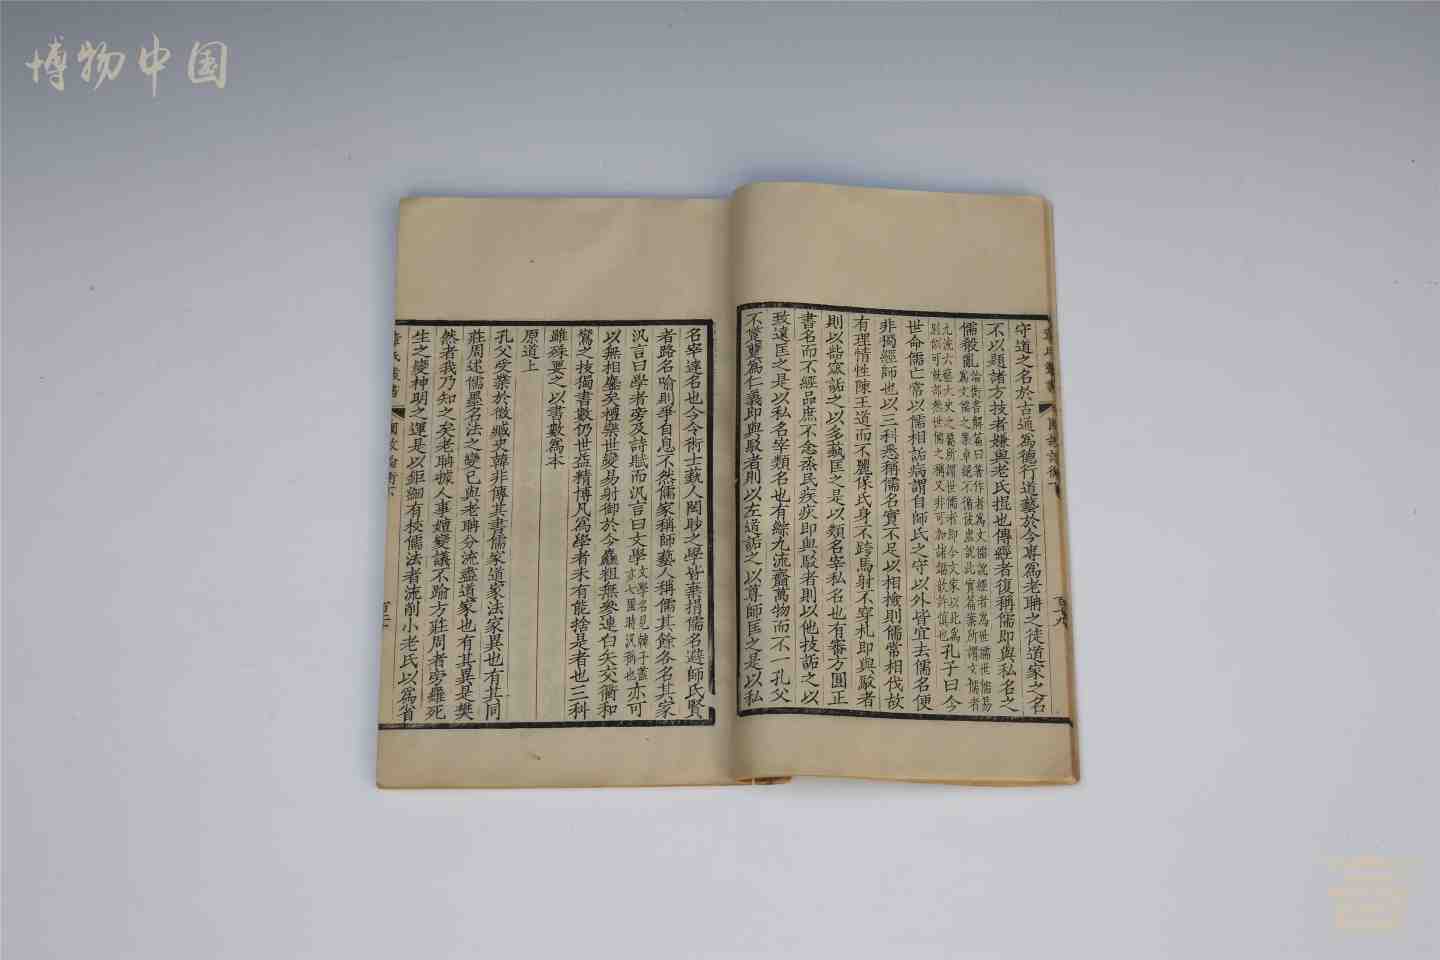 博物中国
守道之名於古通爲德行道藝於今專爲老聃之徒道家之名
不以題諸方技者嫌與老氏掍也傳經者復稱儒即與私名之
儒殽亂
孔子曰今
世命儒亡常以儒相詬病謂自師氏之守以外皆宜去儒名便
非獨經師也以三科悉稱儒名實不足以相檢則儒常相伐故
有理情性陳王道而不麗保氏身不跨馬射不穿札即與駁者
則以啙窳詬之以多藝匡之是以類名宰私名也有審方圓正
書名而不經品庶不念烝民疾疢即與駁者則以他技詬之以
致遠匡之是以私名宰類名也有綜九流齏萬物而不一孔父
不蹩躠爲仁義即與駁者則以左道詬之以尊師匡之是以私
名宰達名也今令術士藝人閎眇之學皆棄捐儒名避師氏賢
者路名喻則爭自息不然儒家稱師藝人稱儒其餘各名其家
汎言曰學者旁及詩賦而汎言曰文學文學名見韓子蓋亦七國時汎稱也亦可
以無相鏖矣禮樂世變易射御於今麤粗無參連白矢交衢和
鸞之技獨書數仍世益精博凡爲學者未有能捨是者也三科
雖殊要之以書數爲本
原道上
孔父受業於徵臧史韓非傳其書儒家道家法家異也有其同
莊周述儒墨名法之變已與老聃分流盡道家也有其異是樊
然者我乃知之矣老聃據人事嬗變議不踰方莊周者旁羅死
生之變神明之運是以鉅細有校儒法者流削小老氏以爲省